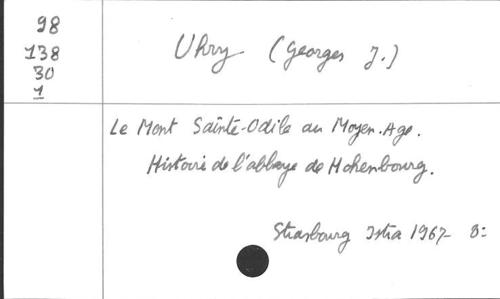 98
138
30
1
Uhry (Georges J.)
Le Mont Sainte-Odile au Moyen-Age.
Histoire de l'abbaye de Hohenbourg.
Strasbourg Istra 1967- 8: